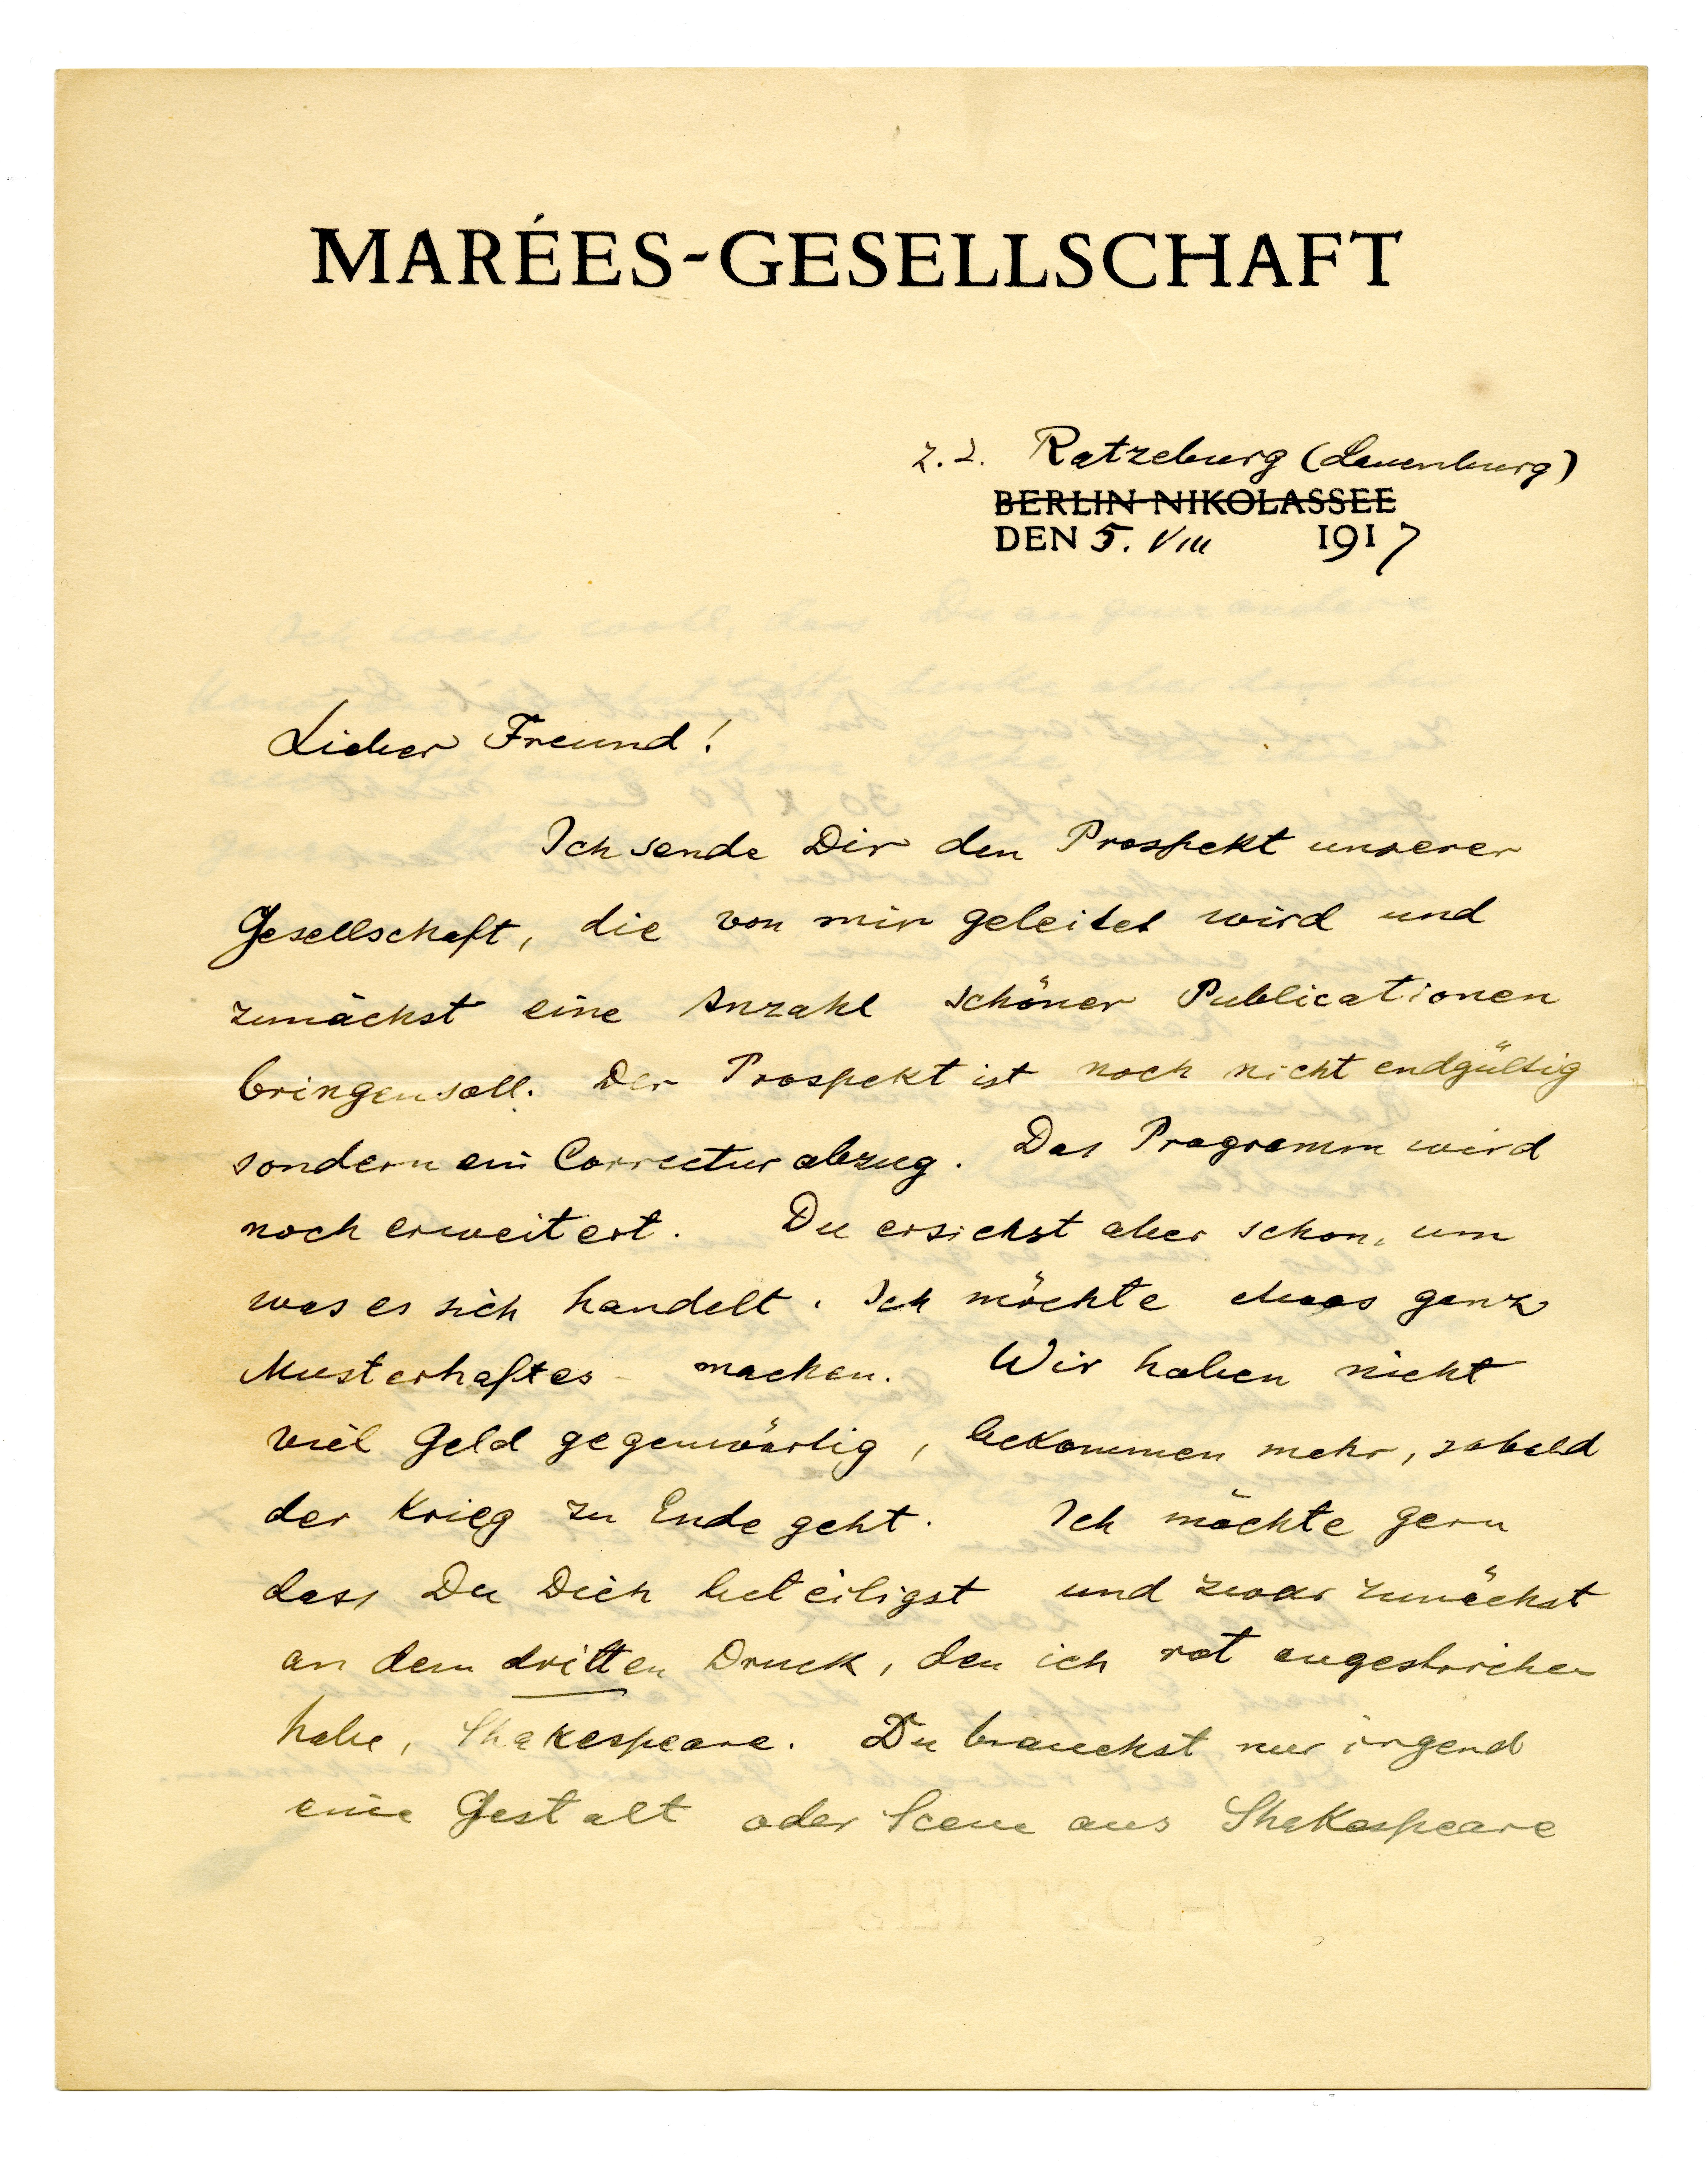 MARÉES-GESELLSCHAFT
z. Z. Ratzeburg (Lauenburg)
BERLIN-NIKOLASSEE
DEN 5. VIII 1917
Lieber Freund!
Ich sende Dir den Prospekt unserer
Gesellschaft, die von mir geleitet wird und
zunächst eine Anzahl schöner Publicationen
bringen soll. Der Prospekt ist noch nicht endgültig
sondern ein Correcturabzug. Das Programm wird
noch erweitert. Du ersiehst aber schon, um
was es sich handelt. Ich möchte etwas ganz
Musterhaftes machen. Wir haben nicht
viel Geld gegenwärtig, bekommen mehr, sobald
der Krieg zu Ende geht. Ich möchte gern
dass Du Dich beteiligst und zwar zunächst
an dem dritten Druck, den ich rot angestrichen
habe, Shakespeare. Du brauchst nur irgend
eine Gestalt oder Scene aus Shakespeare